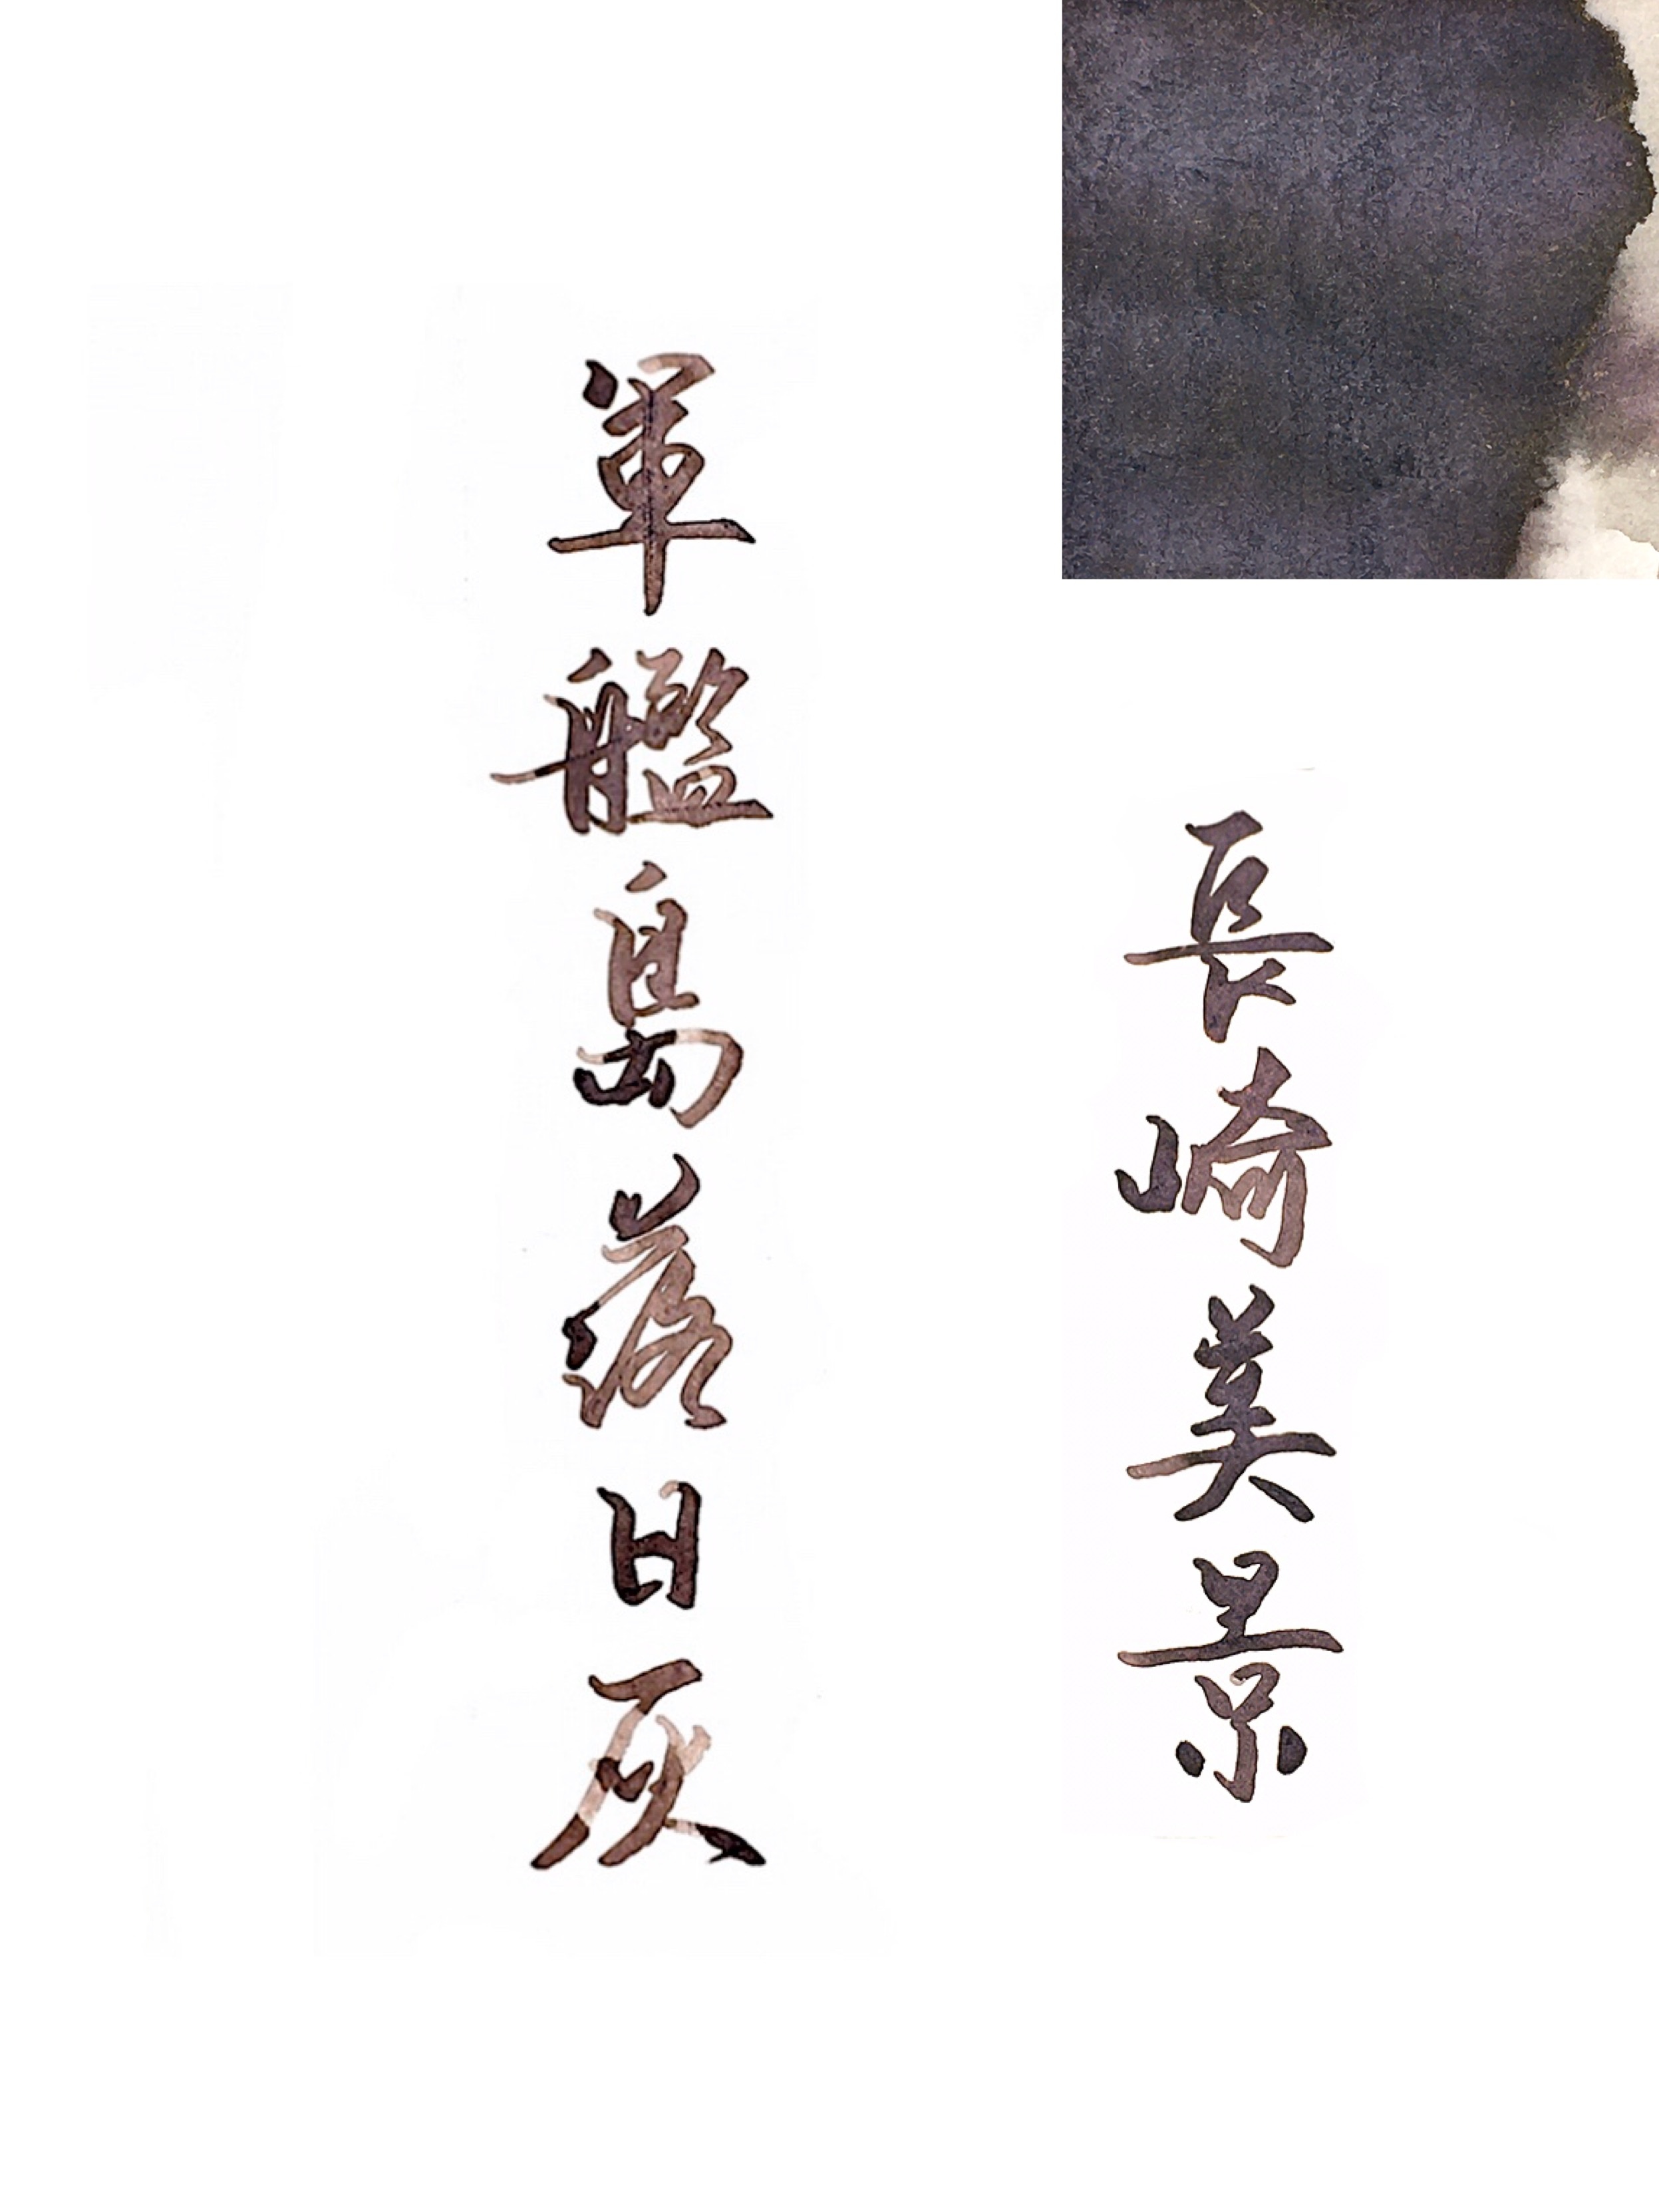 長崎美景
軍艦島落日灰